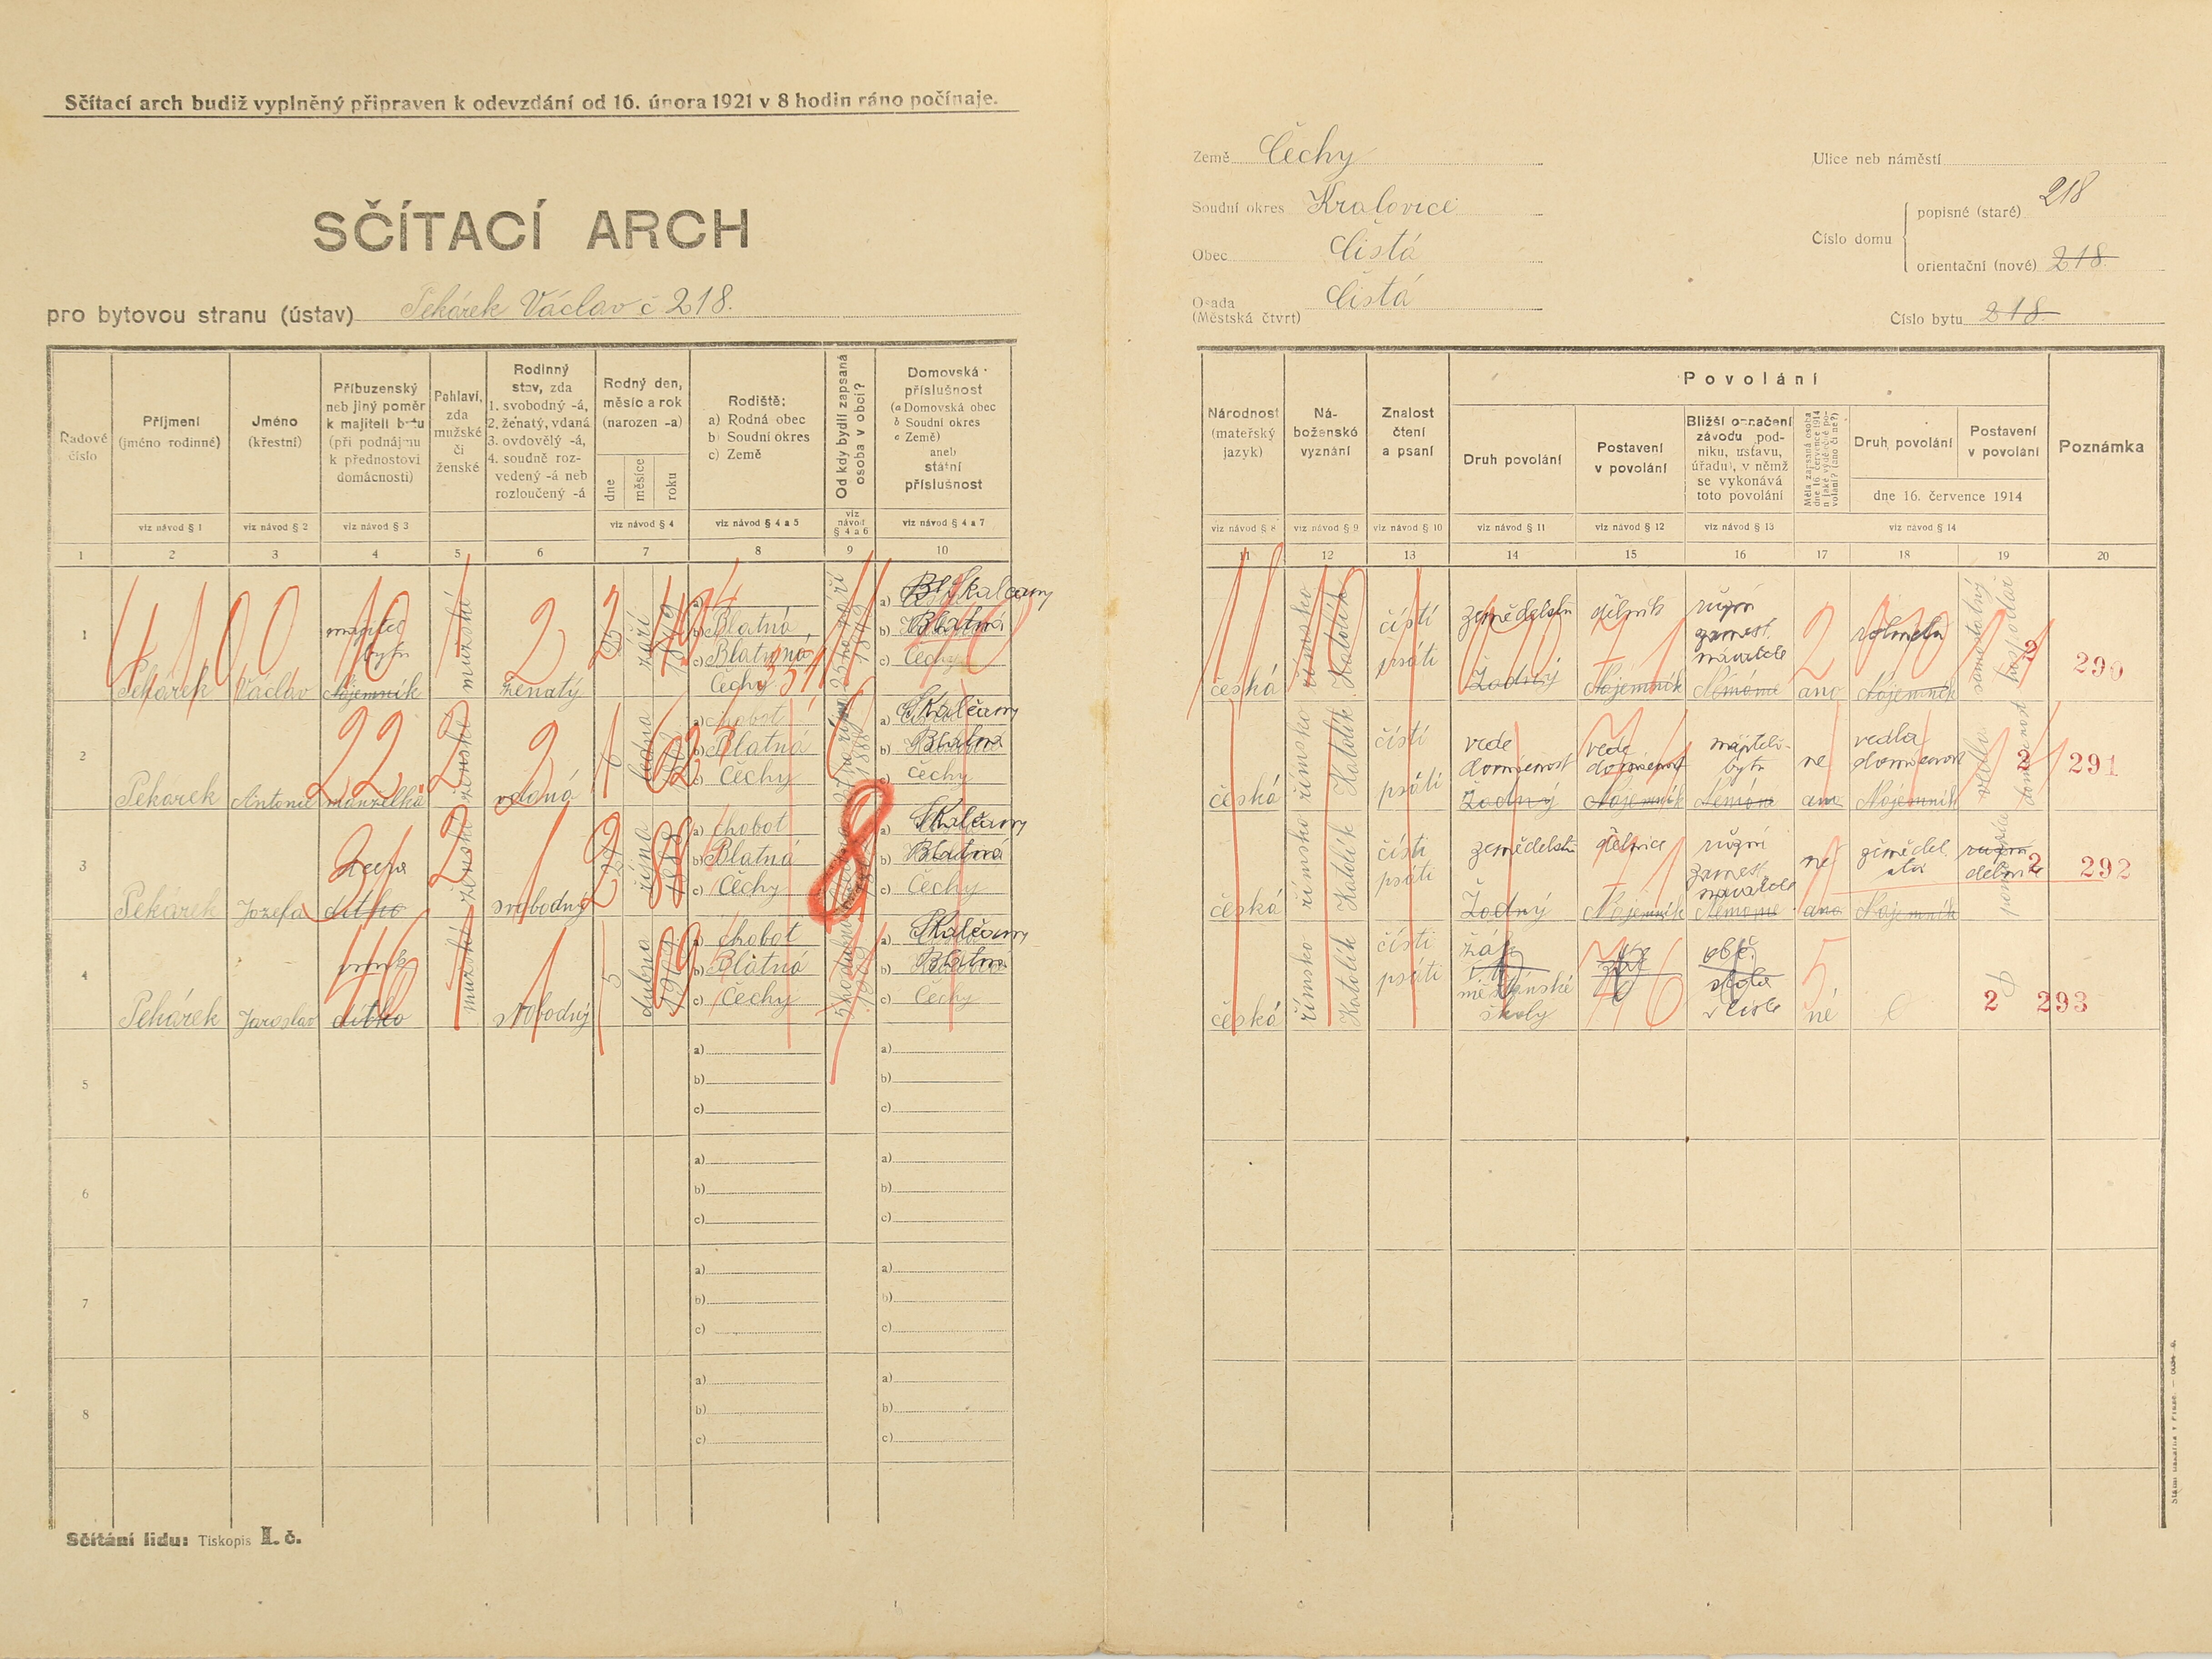 Sčítací arch budiž vyplněný připraven k odevzdání od 16. února 1921 v 8 hodin ráno počínaje.
SČÍTACÍ ARCH
pro bytovou stranu (ústav) Pekárek Václav č 218.
Země Čechy
Soudní okres Kralovice
Obec Čistá
Osada Čistá
(Městská čtvrt)
Ulice neb náměstí
Číslo domu
popisné (staré) 218
orientační (nové) 218
Číslo bytu 218
Řadové číslo
Příjmení (jméno rodinné)
Jméno (křestní)
Příbuzenský neb jiný poměr k majiteli bytu (při podnájmu k přednostovi domácnosti)
Pohlaví, zda mužské či ženské
Rodinný stav, zda 1. svobodný -á, 2. ženatý, vdaná 3. ovdovělý -á, 4. soudně rozvedený -á neb rozloučený -á
Rodný den, měsíc a rok (narozen -a)
dne
měsíce
roku
Rodiště:
a) Rodná obec
b) Soudní okres
c) Země
Od kdy bydlí zapsaná osoba v obci?
Domovská příslušnost
(a Domovská obec
b Soudní okres
c Země)
aneb státní příslušnost
viz návod § 1
viz návod § 2
viz návod § 3
viz návod § 4
viz návod § 4 a 5
viz návod § 4 a 6
viz návod § 4 a 7
1 2 3 4 5 6 7 8 9 10
Národnost (mateřský jazyk)
Náboženské vyznání
Znalost čtení a psaní
Povolání
Druh povolání
Postavení v povolání
Bližší označení závodu, podniku, ústavu, úřadu, v němž se vykonává toto povolání
Měla zapsaná osoba dne 16. července 1914 nějaké výdělečné povolání? (ano či ne?)
Druh povolání
Postavení v povolání
dne 16. července 1914
Poznámka
viz návod § 8
viz návod § 9
viz návod § 10
viz návod § 11
viz návod § 12
viz návod § 13
viz návod § 14
11 12 13 14 15 16 17 18 19 20
1
Pekárek
Václav
majitel
bytu
Nájemník
mužské
ženatý
25
září
1849
b) Blatná
c) Blatná
Čechy
a) Skalčany
b) Blatná
c) Čechy
česká
římsko Katolík
čísti
psáti
dělník
Žádný
Nájemník
různí
zaměst
ano
Nájemník
2
290
2
Pekárek
Antonie
manželka
ženské
vdaná
6
ledna
a) chobot
b) Blatná
c) Čechy
a) Skalčany
b) Blatná
c) Čechy
česká
římsko Katolík
čísti
psáti
vede
domácnost
Žádný
vede
domácnost
Nájemník
bytu
ne
vedla
domácnost
Nájemník
2
291
3
Pekárek
Jozefa
dcera
dítko
ženské
svobodný
29
října
1888
a) chobot
b) Blatná
c) Čechy
a) Skalčany
b) Blatná
c) Čechy
česká
římsko Katolík
čísti
psáti
Žádný
dělnice
Nájemník
různí
zaměst
ne
ano
Nájemník
2
292
4
Pekárek
Jaroslav
vnuk
dítko
mužské
svobodný
5
dubna
1909
a) chobot
b) Blatná
c) Čechy
a) Skalčany
b) Blatná
c) Čechy
česká
římsko Katolík
čísti
psáti
žák
měšťanské
školy
škola
v Čisté
né
2
293
5
a)
b)
c)
a)
b)
c)
6
a)
b)
c)
a)
b)
c)
7
a)
b)
c)
a)
b)
c)
8
a)
b)
c)
a)
b)
c)
Sčítání lidu: Tiskopis I. č.